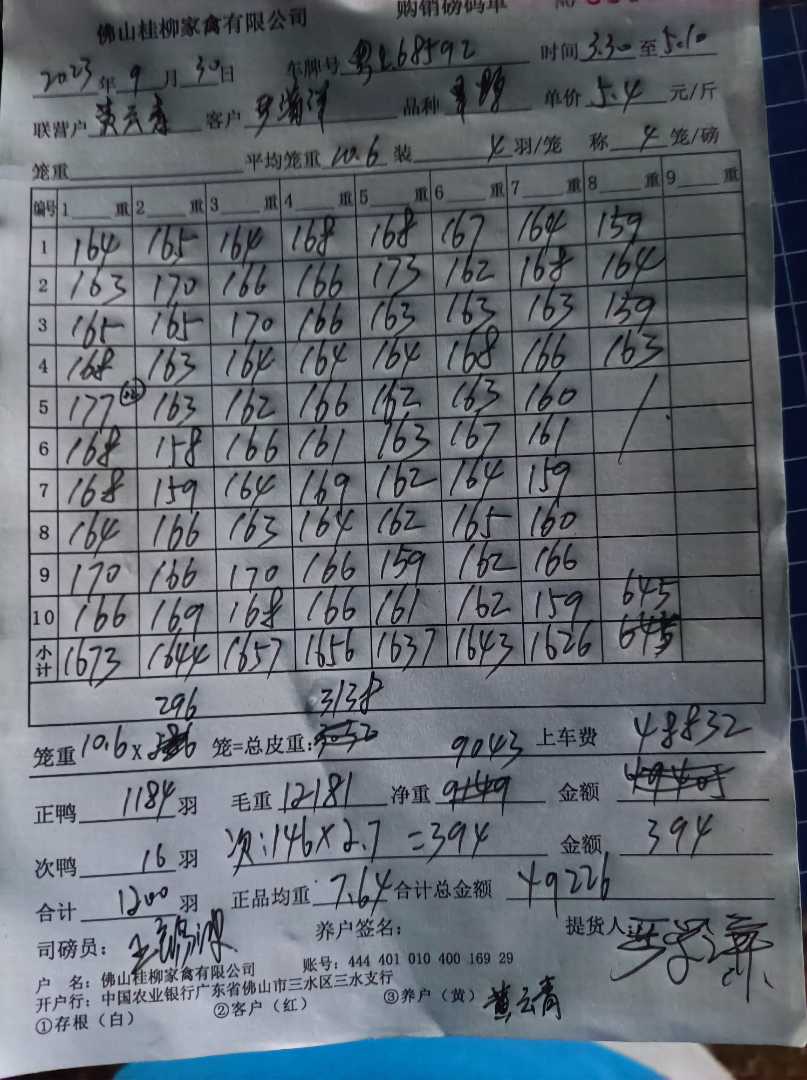 佛山桂柳家禽有限公司 购销磅码单
2023年9月30日 车牌号 68592 时间3.30至5.10
联营户黄云青 客户 品种 单价5.4元/斤
笼重 平均笼重10.6 装4羽/笼 称4笼/磅
编号 1 重 2 重 3 重 4 重 5 重 6 重 7 重 8 重 9 重
1 164 165 164 168 168 167 164 159
2 163 170 166 166 173 162 168 164
3 165 165 170 166 163 163 163 159
4 168 163 164 164 164 168 166 163
5 177 163 162 166 162 163 160 /
6 168 158 166 161 163 167 161
7 168 159 164 169 162 164 159
8 164 166 163 164 162 165 160
9 170 166 170 166 159 162 166
10 166 169 168 166 161 162 159 645
小计 1673 1644 1657 1656 1637 1643 1626
296 3138
笼重10.6× 笼=总皮重: 9043 上车费 48832
正鸭1184羽 毛重12181 净重 金额
次鸭16羽 次:146×2.7=394 金额394
合计1200羽 正品均重7.64 合计总金额49226
司磅员: 养户签名: 提货人:
户 名: 佛山桂柳家禽有限公司 账号: 444 401 010 400 169 29
开户行: 中国农业银行广东省佛山市三水区三水支行
①存根(白) ②客户(红) ③养户(黄) 黄云青